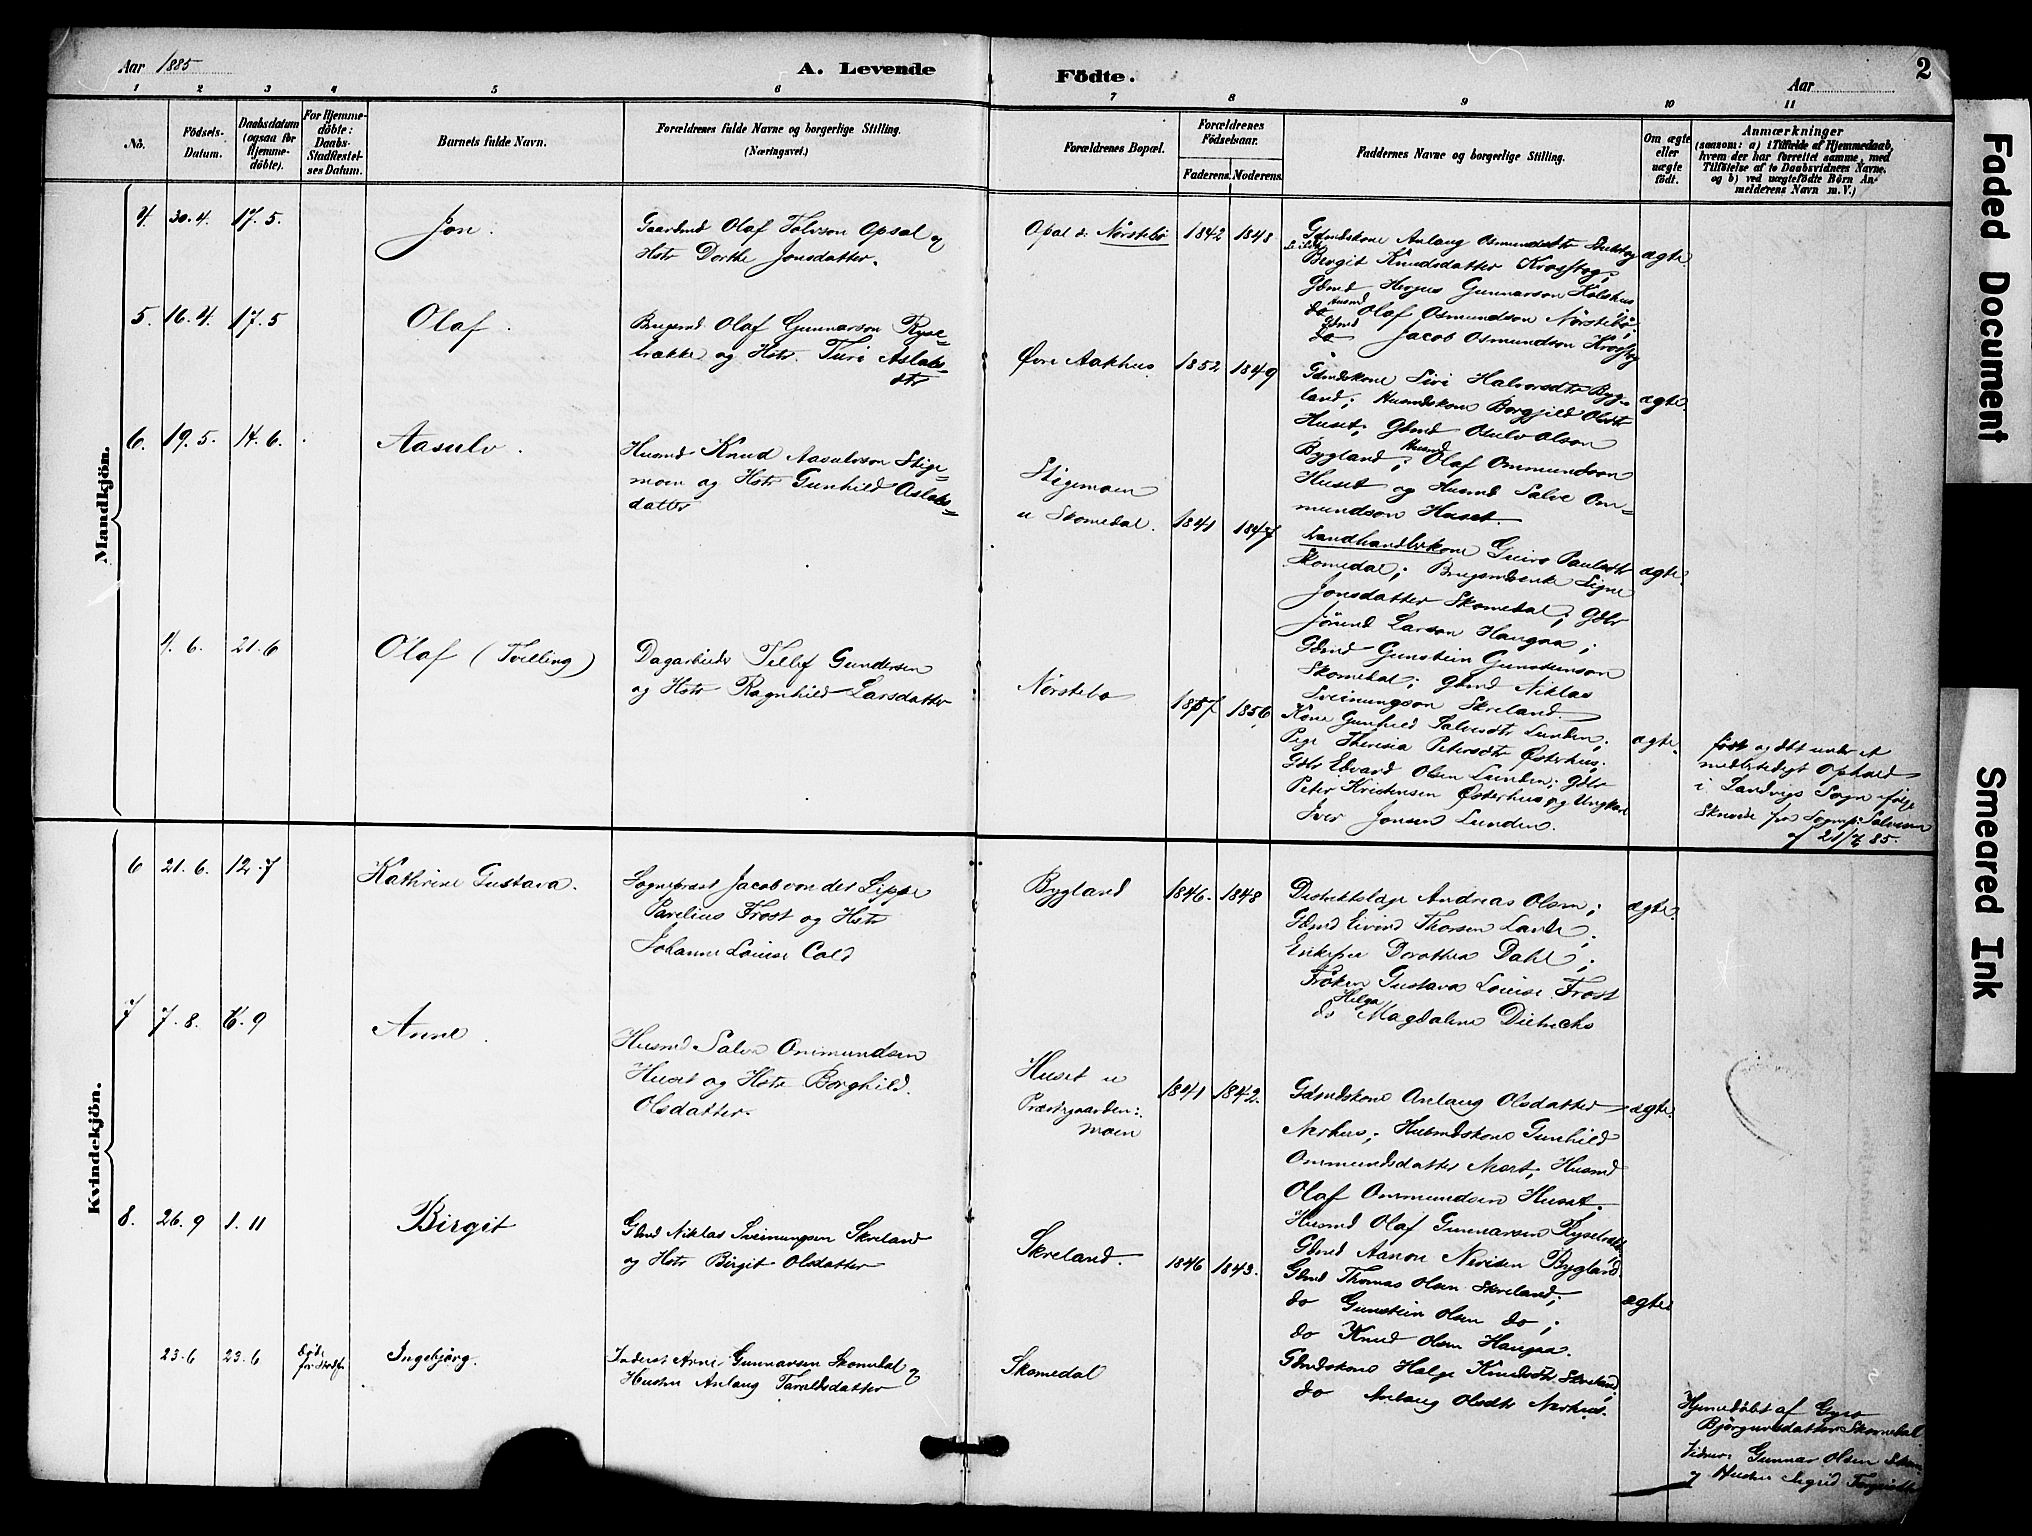 Aar 1885
A. Levende
Födte.
Aar
2
1 2 3 4 5 6 7 8 9 10 11
No.
Födsels-
Datum.
Daabsdatum
(ogsaa for
Hjemme-
döbte).
For Hjemme-
döbte:
Daabs-
Stadfæstel-
ses Datum.
Barnets fulde Navn.
Forældrenes fulde Navne og borgerlige Stilling.
(Næringsvei.)
Forældrenes Bopæl.
Forældrenes
Födselsaar.
Faderens. Moderens.
Faddernes Navne og borgerlige Stilling.
Om ægte
eller
uægte
födt.
Anmærkninger
(saasom: a) i Tilfælde af Hjemmedaab,
hvem der har forrettet samme, med
Tilföielse af to Daabsvidners Navne,
og b) ved uægtefödte Börn An-
melderens Navn m. V.)
Mandkjön.
4. 30.4. 17.5. Jon.
Gaardmd Olaf Tolvson Opsal og
Hstr Dorthe Jonsdatter.
Opsal i Nörstebö 1842 1848
Gdmdskone Anlaug Osmundsdtr
Bergit Knudsdatter
Gdmd Herjus Gunnarson
do Olaf Osmundson Nörstebö
do Jacob Osmundson
ægte.
5. 16.4. 17.5 Olaf.
Brugsmd Olaf Gunnarson Ryse-
brække og Hstr. Turi Aslaks-
dtr
Övre Aakhus 1852 1849
Gdmdskone Siri Halvorsdtr Byg-
land; Husmdskone Borgjild Olsdtr
Huset; Gdmd Osulv Olson
Bygland; Husmd Olaf Ommundson
Huset og Husmd Salve Om-
mundson Huset.
ægte.
6. 19.5. 14.6. Aasulv.
Husmd Knud Aasulvson Stige-
moen og Hstr Gunhild Aslaks-
datter
Stigemoen
u Skomedal. 1841 1847
Landhandlerkone Guro Paulsdtr
Skomedal; Brugsmdsenke Signe
Jonsdatter Skomedal; Gdbr
Jörund Larson Haugaa;
Gdmd Gunstein Gunsteinson
Skomedal; Gdmd Niklas
Sveinungson Skreland.
ægte.
4.6. 21.6 Olaf (Tvilling)
Dagarbeider Tellef Gundersen
og Hstr Ragnhild Larsdatter
Nörstebö 1857 1856
Kone Gunhild Salvesdtr Lunden;
Pige Theresia Petersdtr Österhus;
Gdbr Edvard Olsen Lunden; Gdbr
Peter Kristensen Österhus og Ungkarl
Iver Jonsen Lunden.
ægte.
födt og döbt under et
midlertidigt Ophold
i Landvigs Sogn ifölge
Skrivelse fra Sognep:
af 21/7 85.
Kvindekjön.
6 21.6. 12.7 Kathrine Gustava.
Sogneprest Jacob von der Lippe
Parelius Frost og Hstr
Johanne Louise Cold
Bygland 1846. 1848
Distriktslæge Andreas Olsen;
Gdmd Eivind Thorsen Lande;
Enkefru Dorothea Dahl;
Fröken Gustava Louise Frost
do Helga Magdalene Dietrichs
ægte.
7 7.8. 6.9 Anne.
Husmd Salve Ommundsen
Huset og Hstr Borghild.
Olsdatter.
Huset u
Præstegaarden:
moen 1841 1842.
Gdmdskone Anlaug Olsdatter
Nerhus; Husmdskone Gunhild
Ommundsdatter Næset; Husmd
Olaf Ommundsen Huset.
Husmd Olaf Gunnarsen
Gdmd Aanon Bygland.
ægte.
8. 26.9 1.11 Birgit
Gdmd Niklas Sveinungsen Skreland
og Hstr Birgit Olsdatter
Skreland. 1846 1843.
Gdmd Thomas Olsen Skreland;
do Gunstein Olsen do;
do Knud Olsen Haugaa.
Gdmdskone Helge Knudsdtr Skreland
do Anlaug Olsdtr Nerhus.
ægte
23.6 23.6 döde
för Stadf. Ingebjörg.
Inderst Arne Gunnarsen Skomedal og
Hustru Anlaug Taraldsdatter
Skomedal
Hjemmedöbt af Gyro
Björgulvsdatter Skomedal
Vidner: Gunnar Olsen
og Hustru Sigrid
Faded Document
Smeared Ink